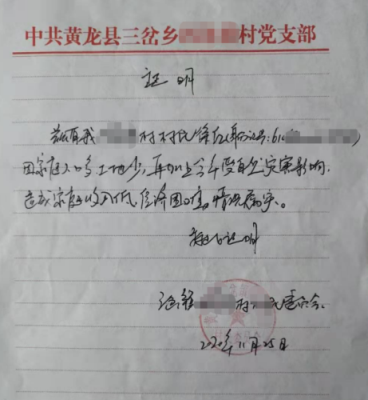 中共黄龙县三岔乡村党支部
证明
兹有我村村民徐(身份证号:61)
因家庭人口多土地少,再加上今年受自然灾害影响,
造成家庭收入低,经济困难,情况属实。
特此证明
证明 村村民委员会
2020年11月25日